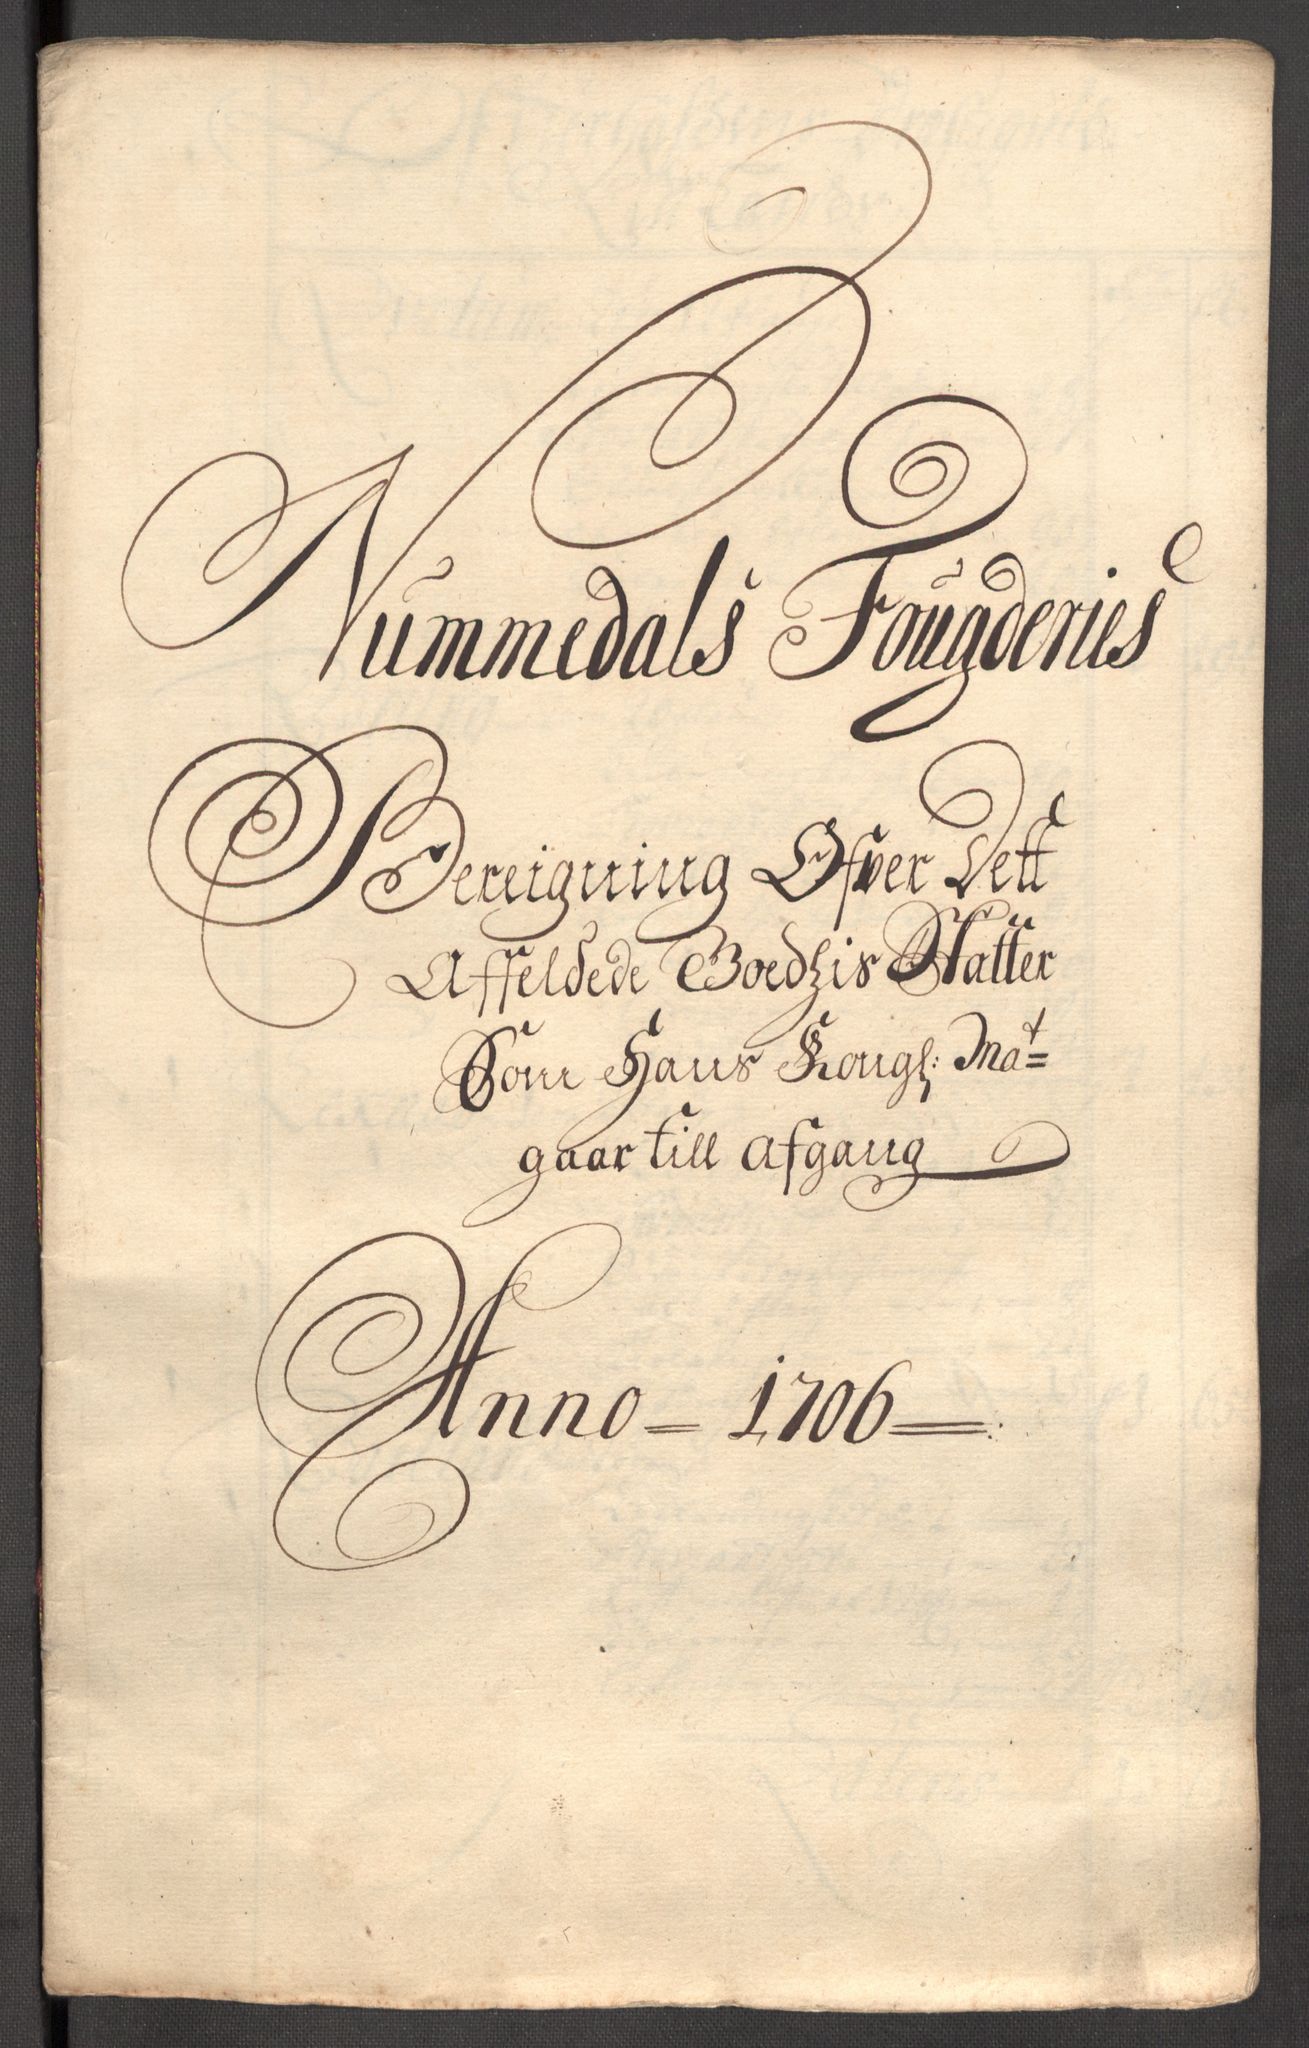 Nummedals Fougderies
Bereigning Ofver Dett
Affeldede Goedzis Skatter
Som Hans Kongl: Ma^t=
gaar till afgang
Anno - 1706